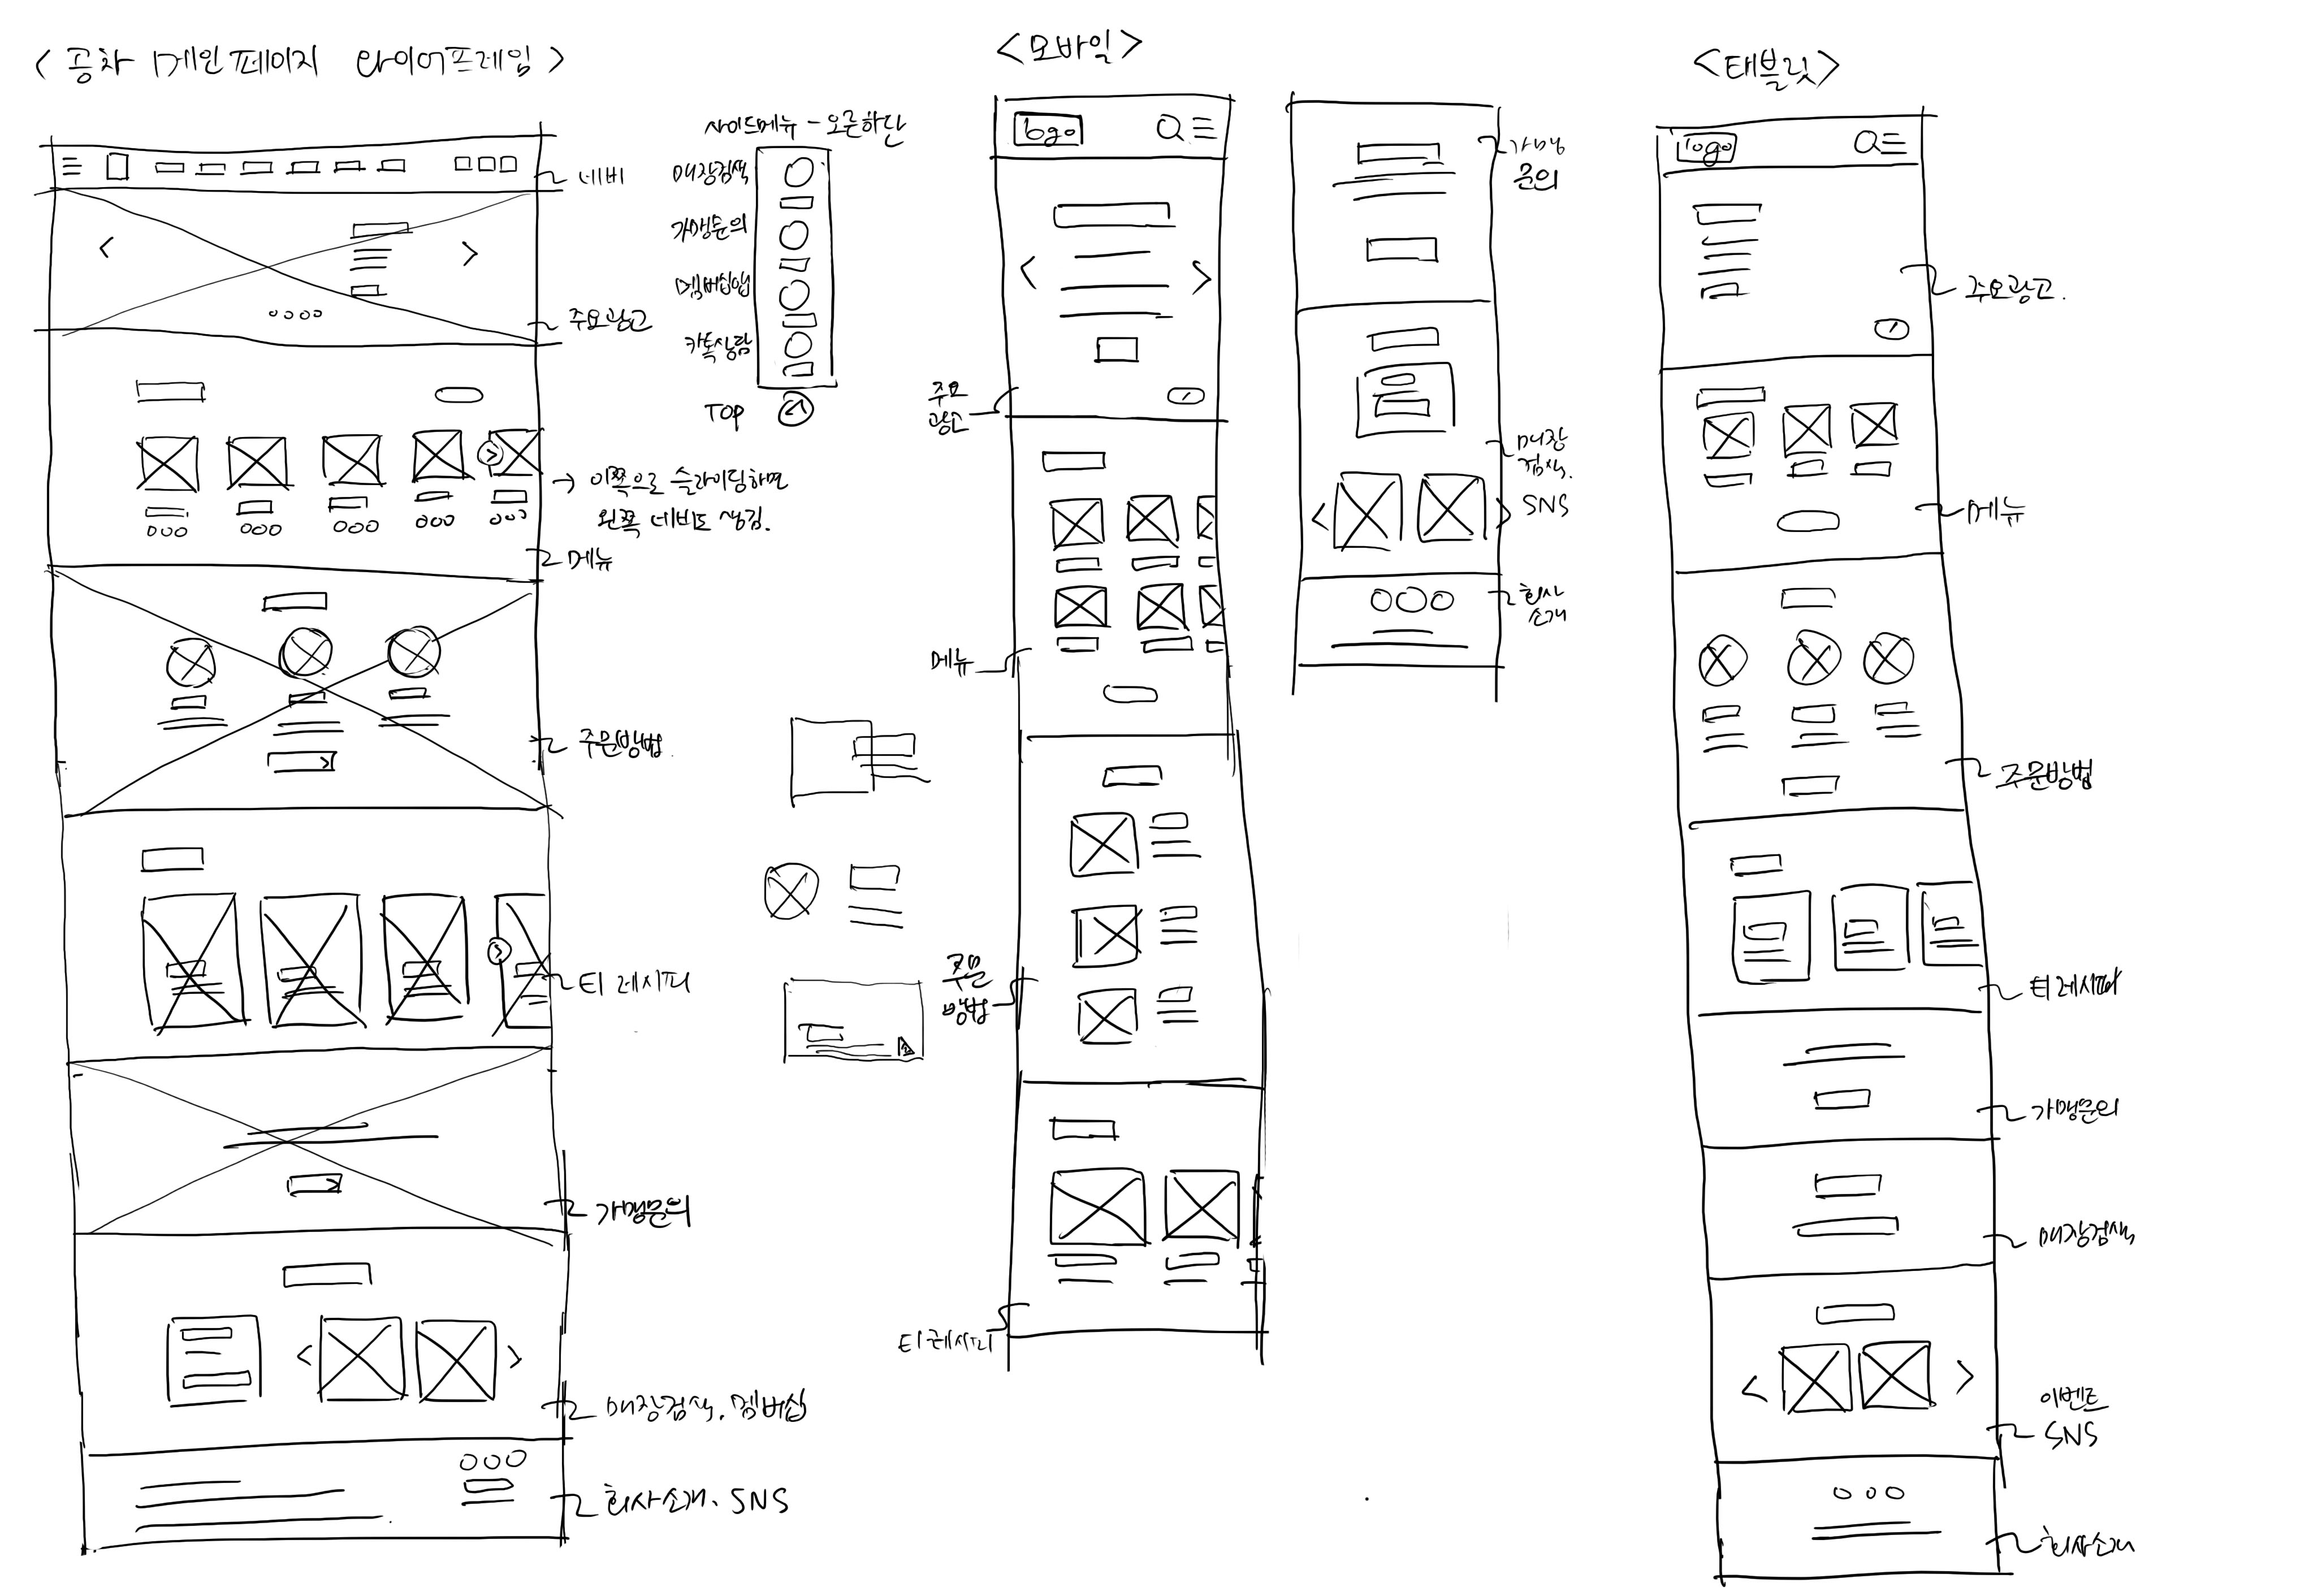 < 공차 메인페이지 와이어프레임 >
네비
주요광고
→ 이쪽으로 슬라이딩하면
왼쪽 네비도 생김.
메뉴
주문방법
티 레시피
가맹문의
매장검색. 멤버십
회사소개. SNS
사이드메뉴 - 오른하단
매장검색
가맹문의
멤버십앱
카톡상담
TOP
<모바일>
logo
주요
광고
메뉴
주문
방법
티레시피
가맹
문의
매장
검색.
SNS
회사
소개
<태블릿>
logo
주요광고.
메뉴
주문방법
티 레시피
가맹문의
매장검색
이벤트
SNS
회사소개